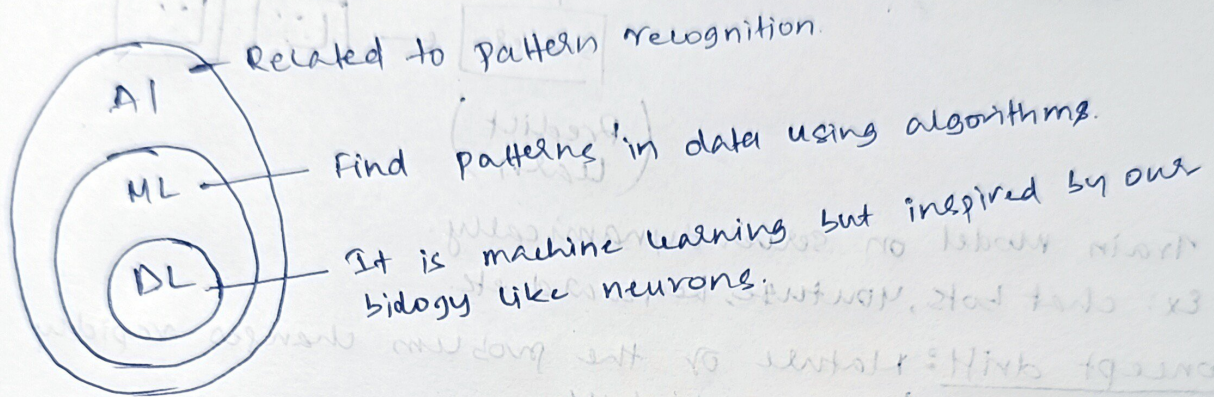 Related to pattern recognition.
AI
Find patterns in data using algorithms.
ML
It is machine learning but inspired by our
biology like neurons.
DL